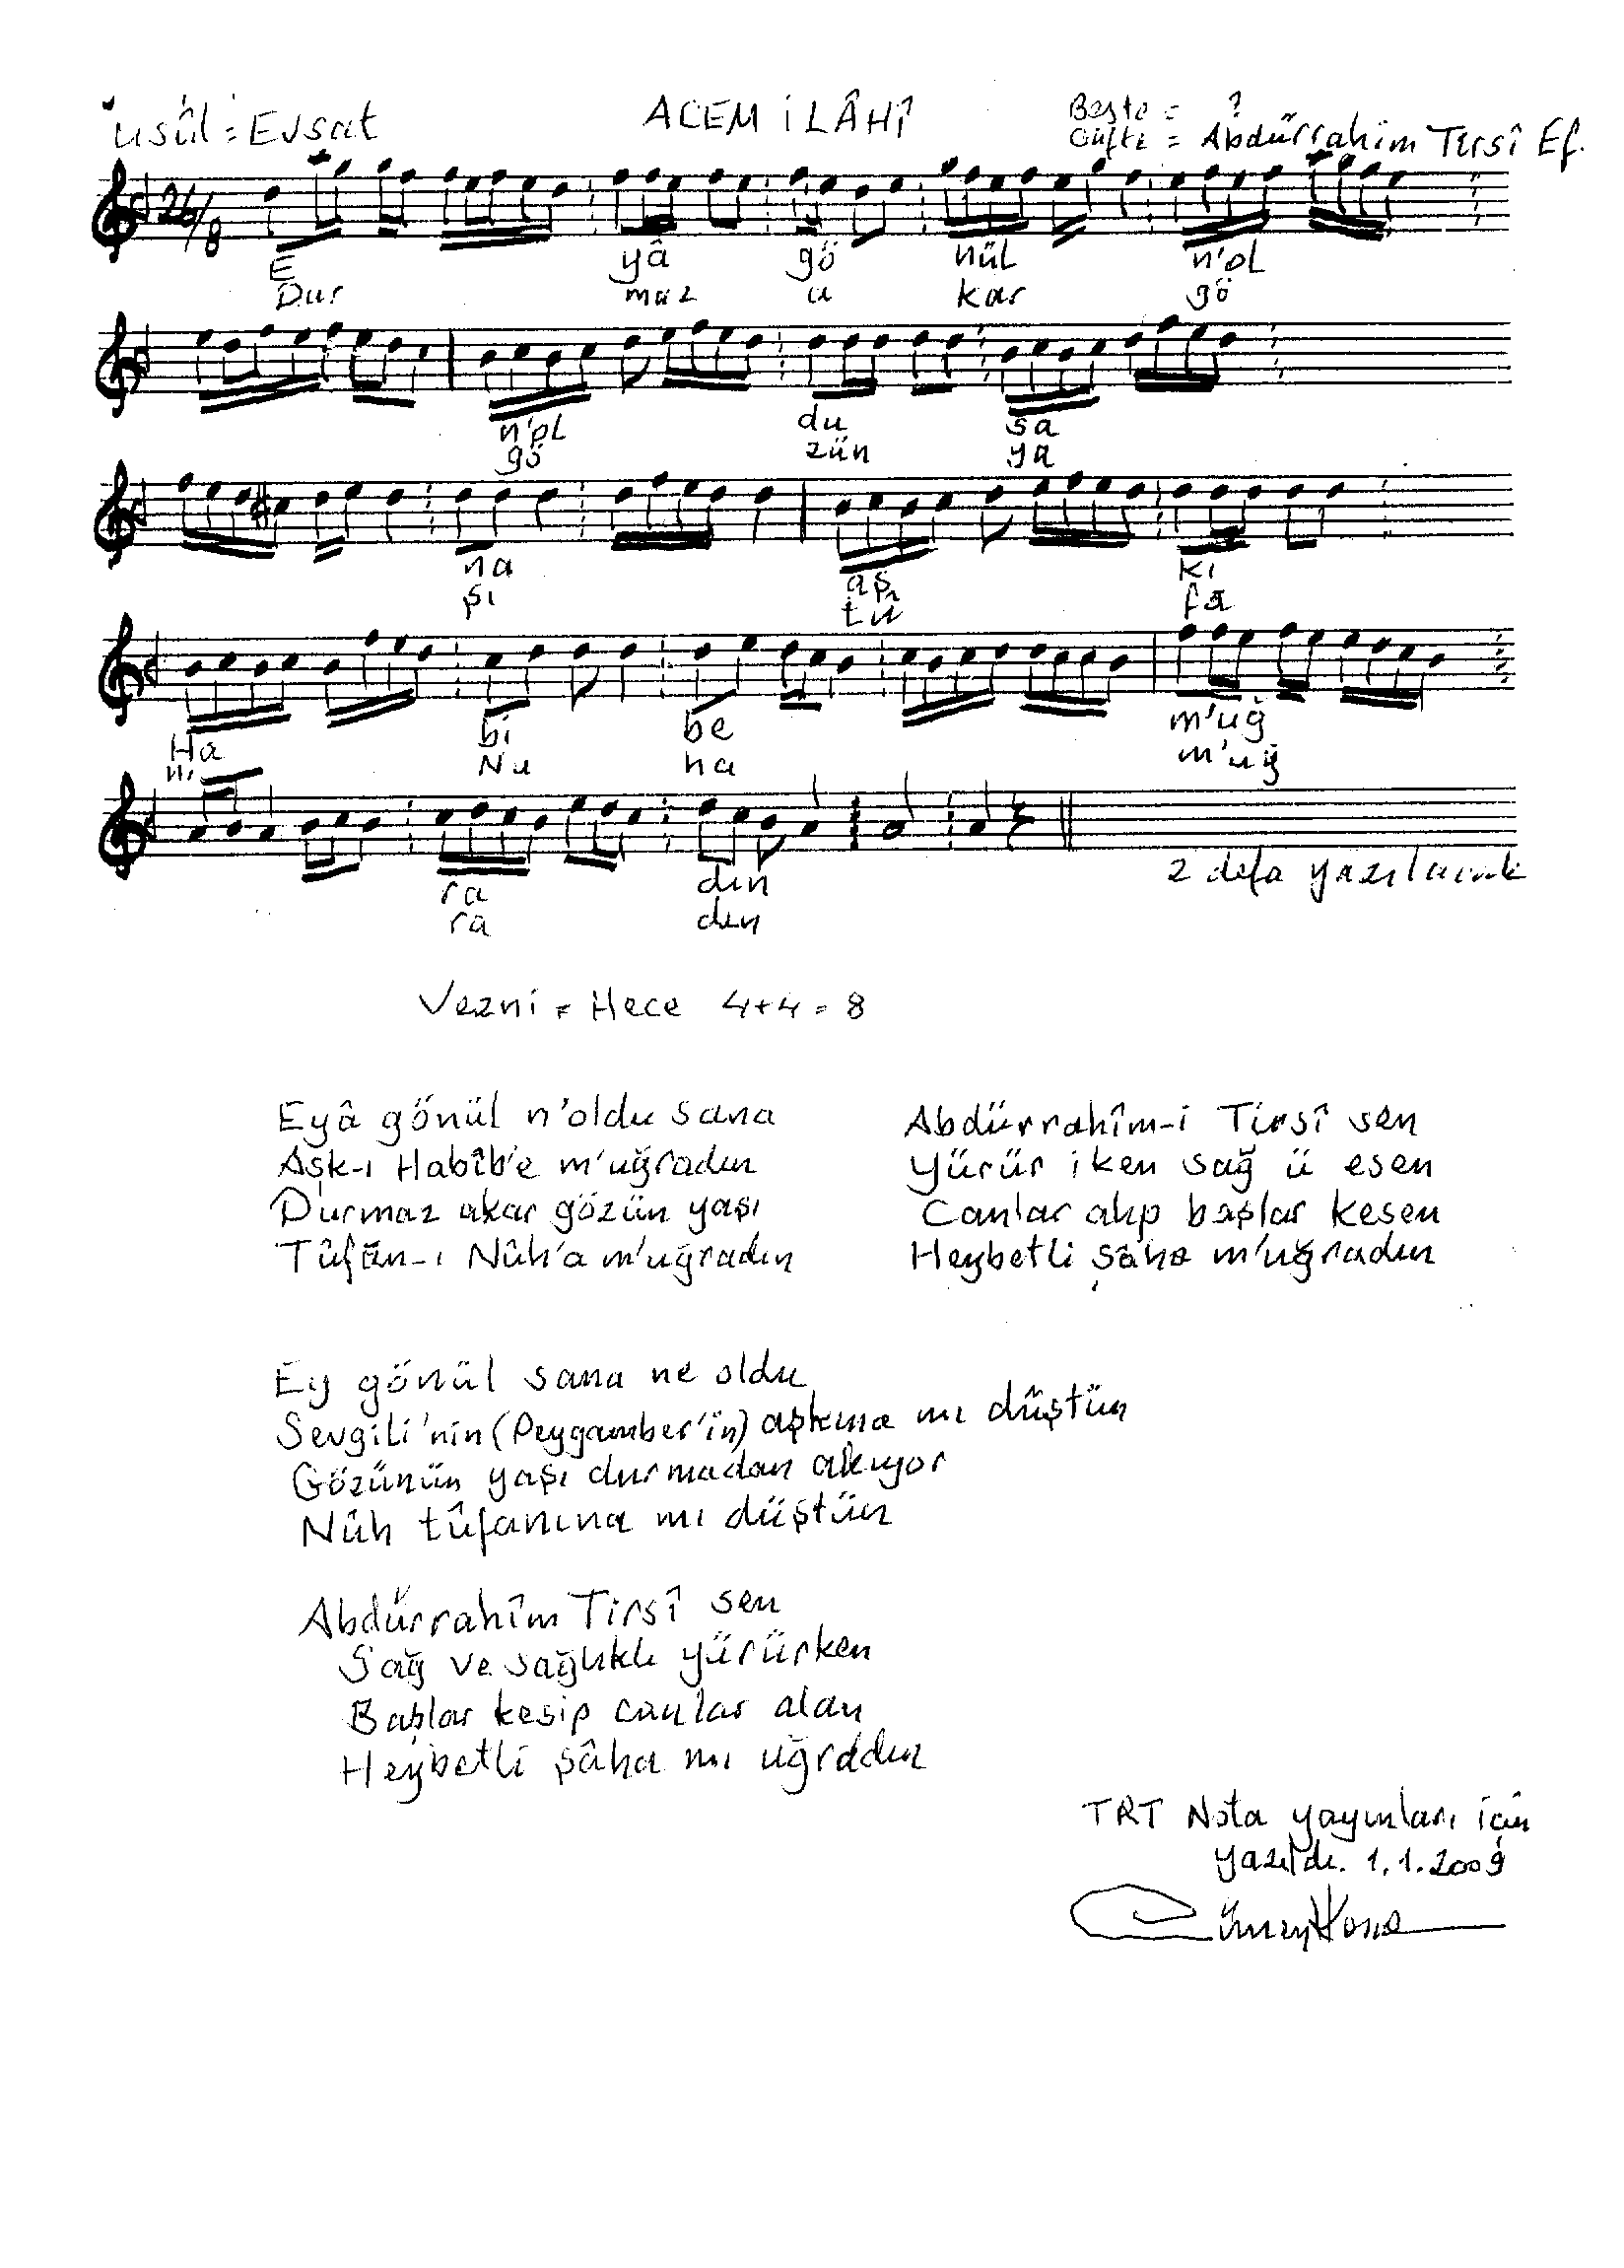 Usûl = Evsat
ACEM İLÂHÎ
Beste = ?
Güfte = Abdürrahim Tirsî Ef.
26/8
E yâ gö nül n'ol
Dur maz a kar gö
n'ol du sa
gö zün ya
na aş kı
şı tu fa
Ha bi be m'uğ
nı Nu ha m'uğ
ra dın
ra dın
2 defa yazılacak
Vezni = Hece 4+4=8
Eyâ gönül n'oldu sana
Aşk-ı Habîb'e m'uğradın
Durmaz akar gözün yaşı
Tûfân-ı Nûh'a m'uğradın
Abdürrahîm-i Tirsî sen
Yürür iken sağ ü esen
Canlar alıp başlar kesen
Heybetli şâha m'uğradın
Ey gönül sana ne oldu
Sevgili'nin (Peygamber'in) aşkına mı düştün
Gözünün yaşı durmadan akıyor
Nûh tûfanına mı düştün
Abdürrahîm Tirsî sen
Sağ ve sağlıklı yürürken
Başlar kesip canlar alan
Heybetli şâha mı uğradın
TRT Nota yayınları için
yazıldı. 1.1.2009